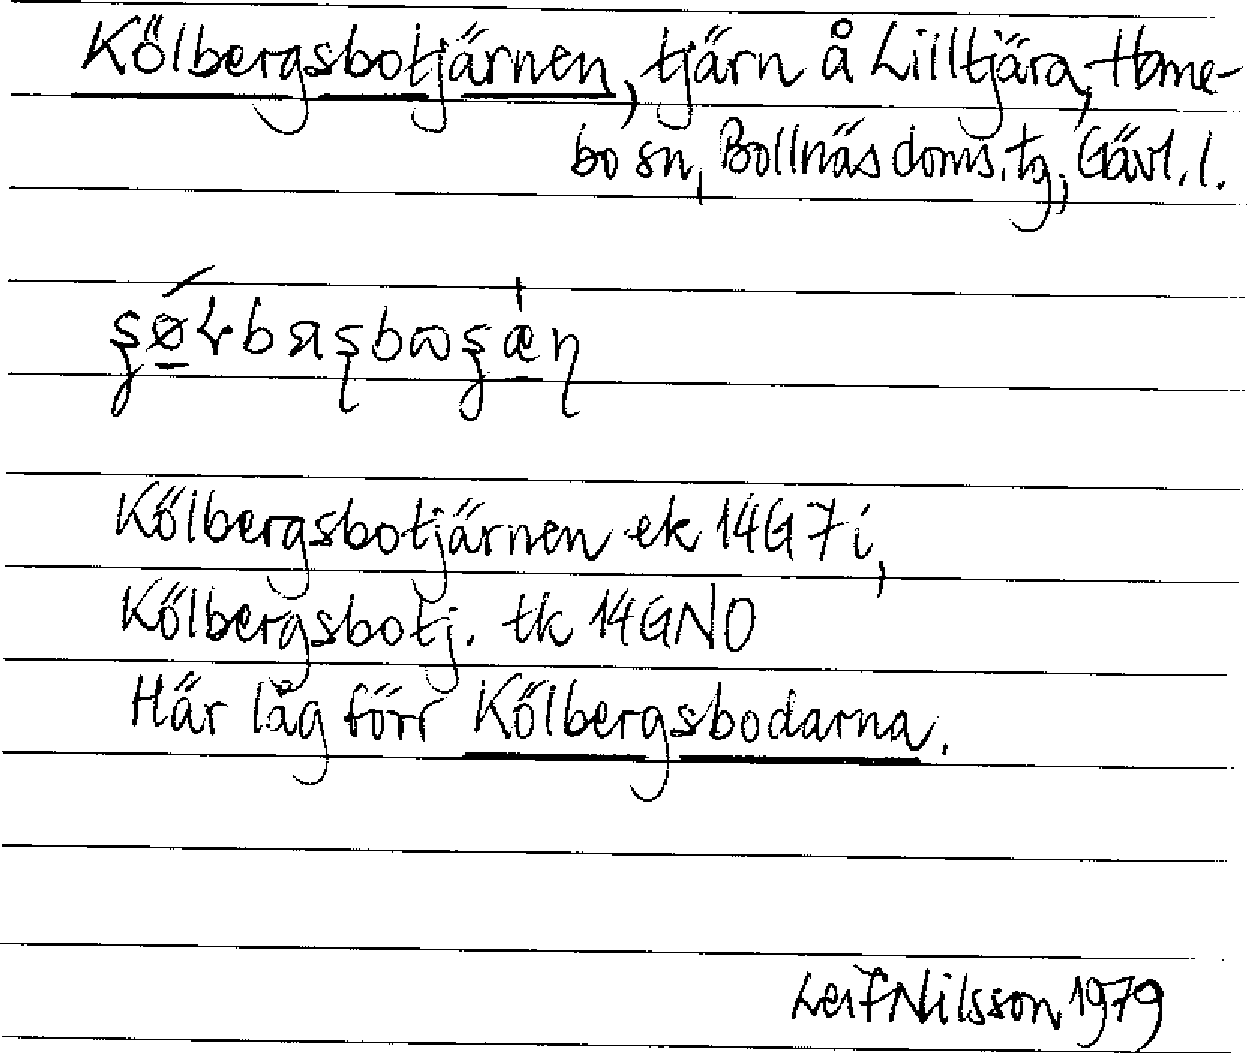 Kölbergsbotjärnen, tjärn å Lilltjära, Hame-
bo sn, Bollnäs doms. tg, Gävl. l.
Kölbergsbotjärnen ek 14G 7i,
Kölbergsbotj. tk 14GNO
Här låg förr Kölbergsbodarna.
Leif Nilsson 1979